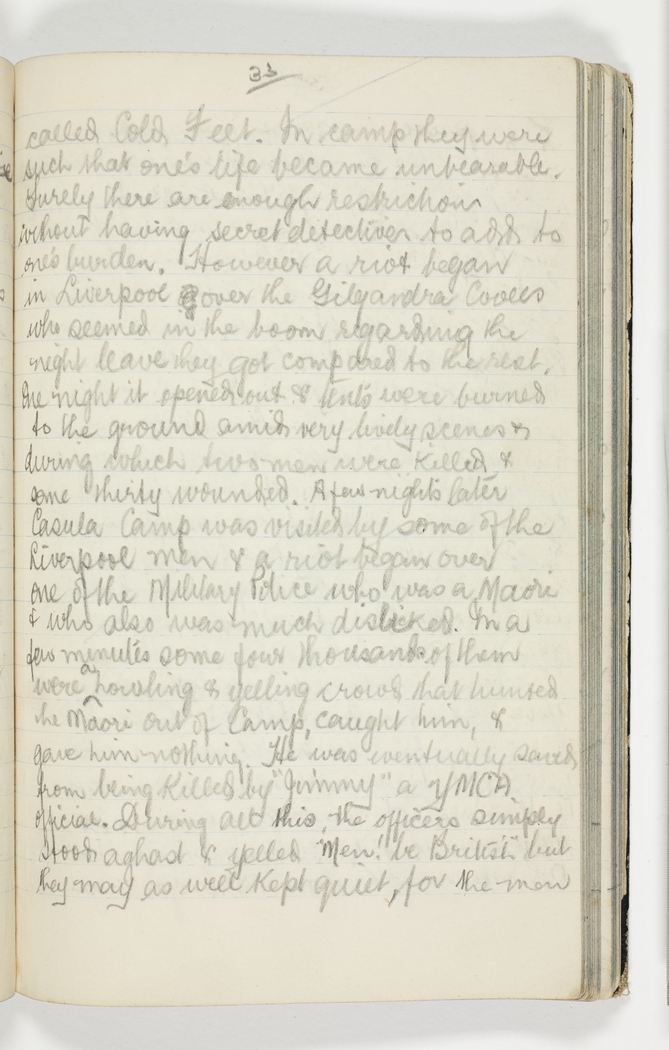 33
called Cold Feet. In camp they were
such that one's life became unbearable.
Surely there are enough restrictions
without having secret detectives to add to
one's burden. However a riot began
in Liverpool over the Gilgandra Cooees
who seemed in the boom regarding the
night leave they got compared to the rest.
One night it opened out & tents were burned
to the ground amid very lively scenes &
during which two men were killed &
some thirty wounded. A few nights later
Casula Camp was visited by some of the
Liverpool men & a riot began over
one of the Military Police who was a Maori
& who also was much disliked. In a
few minutes some four thousand of them
were a howling & yelling crowd that hunted
the Maori out of Camp, caught him, &
gave him nothing. He was eventually saved
from being killed by "Jimmy" a YMCA
official. During all this, the officers simply
stood aghad & yelled "Men! be British" but
they may as well kept quiet, for the men